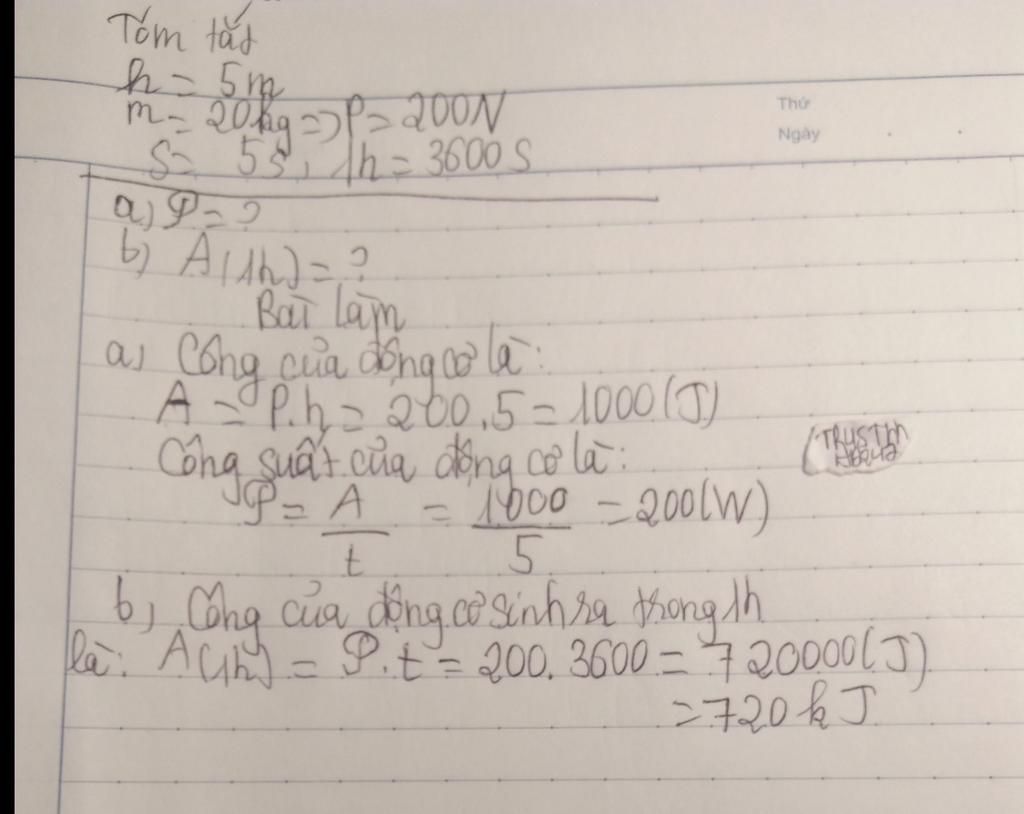 Tóm tắt
h = 5m
m = 20kg => P = 200N
S = 5s, 1h = 3600S
Thứ
Ngày
a) P = ?
b) A(1h) = ?
Bài làm
a) Công của động cơ là:
A = P.h = 200.5 = 1000(J)
Công suất của động cơ là:
P = A/t = 1000/5 = 200(W)
b) Công của động cơ sinh ra trong 1h
là: A(1h) = P.t = 200.3600 = 720000(J)
= 720kJ